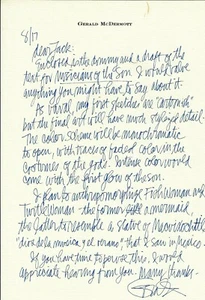 GERALD McDERMOTT
8/17
dear Jack:
Enclosed is the dummy and a draft of the
text for Musicians of the Sun. I would value
anything you might have to say about it.
As usual, my first sketches are "cartoonish"
but the final art will have much stylized detail.
The color scheme will be monochromatic
to open, with traces of faded color in the
costumes of the gods. Intense color would
come with the first glow of the sun.
I plan to anthropomorphize Fish Woman and
Turtle Woman - the former a mermaid,
the latter to resemble a statue of
that I saw in Mexico.
If you have time to peruse this, I would
appreciate hearing from you. Many thanks -